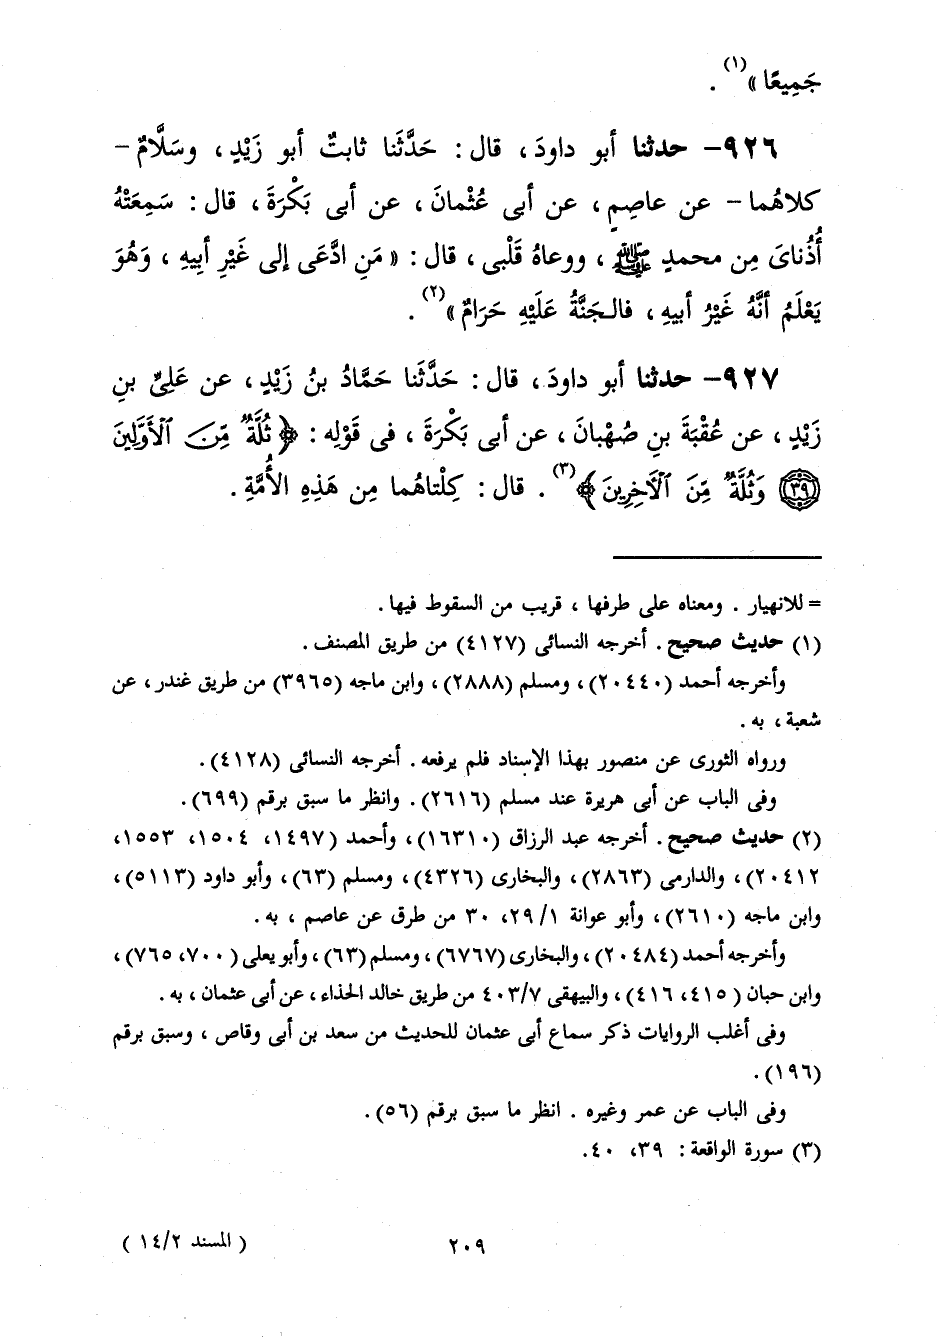 جَمِيعًا »(١) .
٩٢٦- حدثنا أبو داودَ ، قال : حَدَّثَنا ثابتٌ أبو زَيْدٍ ، وسَلَّامٌ -
كلاهُما - عن عاصِمٍ ، عن أبى عُثْمانَ ، عن أبى بَكْرَةَ ، قال : سَمِعَتْهُ
أُذُناىَ مِن محمدٍ ﷺ ، ووعاهُ قَلْبى ، قال : « مَنِ ادَّعَى إلى غَيْرِ أبِيهِ ، وَهُوَ
يَعْلَمُ أنَّهُ غَيْرُ أبيهِ ، فالجَنَّةُ عَلَيْهِ حَرَامٌ »(٢) .
٩٢٧- حدثنا أبو داودَ ، قال : حَدَّثَنا حَمَّادُ بنُ زَيْدٍ ، عن عَلِىِّ بنِ
زَيْدٍ ، عن عُقْبَةَ بنِ صُهْبانَ ، عن أبى بَكْرَةَ ، فى قَوْلِه : ﴿ ثُلَّةٌ مِّنَ ٱلْأَوَّلِينَ
(٣٩) وَثُلَّةٌ مِّنَ ٱلْآخِرِينَ ﴾(٣) . قال : كِلْتاهُما مِن هَذِهِ الأُمَّةِ .
= للانهيار . ومعناه على طرفها ، قريب من السقوط فيها .
(١) حديث صحيح . أخرجه النسائى (٤١٢٧) من طريق المصنف .
وأخرجه أحمد (٢٠٤٤٠) ، ومسلم (٢٨٨٨) ، وابن ماجه (٣٩٦٥) من طريق غندر ، عن
شعبة ، به .
ورواه الثورى عن منصور بهذا الإسناد فلم يرفعه . أخرجه النسائى (٤١٢٨) .
وفى الباب عن أبى هريرة عند مسلم (٢٦١٦) . وانظر ما سبق برقم (٦٩٩) .
(٢) حديث صحيح . أخرجه عبد الرزاق (١٦٣١٠) ، وأحمد (١٤٩٧، ١٥٠٤، ١٥٥٣،
٢٠٤١٢) ، والدارمى (٢٨٦٣) ، والبخارى (٤٣٢٦) ، ومسلم (٦٣) ، وأبو داود (٥١١٣) ،
وابن ماجه (٢٦١٠) ، وأبو عوانة ١/ ٢٩، ٣٠ من طرق عن عاصم ، به .
وأخرجه أحمد (٢٠٤٨٤) ، والبخارى (٦٧٦٧) ، ومسلم (٦٣) ، وأبو يعلى (٧٠٠، ٧٦٥) ،
وابن حبان (٤١٥، ٤١٦) ، والبيهقى ٤٠٣/٧ من طريق خالد الحذاء ، عن أبى عثمان ، به .
وفى أغلب الروايات ذكر سماع أبى عثمان للحديث من سعد بن أبى وقاص ، وسبق برقم
(١٩٦) .
وفى الباب عن عمر وغيره . انظر ما سبق برقم (٥٦) .
(٣) سورة الواقعة : ٣٩، ٤٠ .
٢٠٩
( المسند ١٤/٢ )